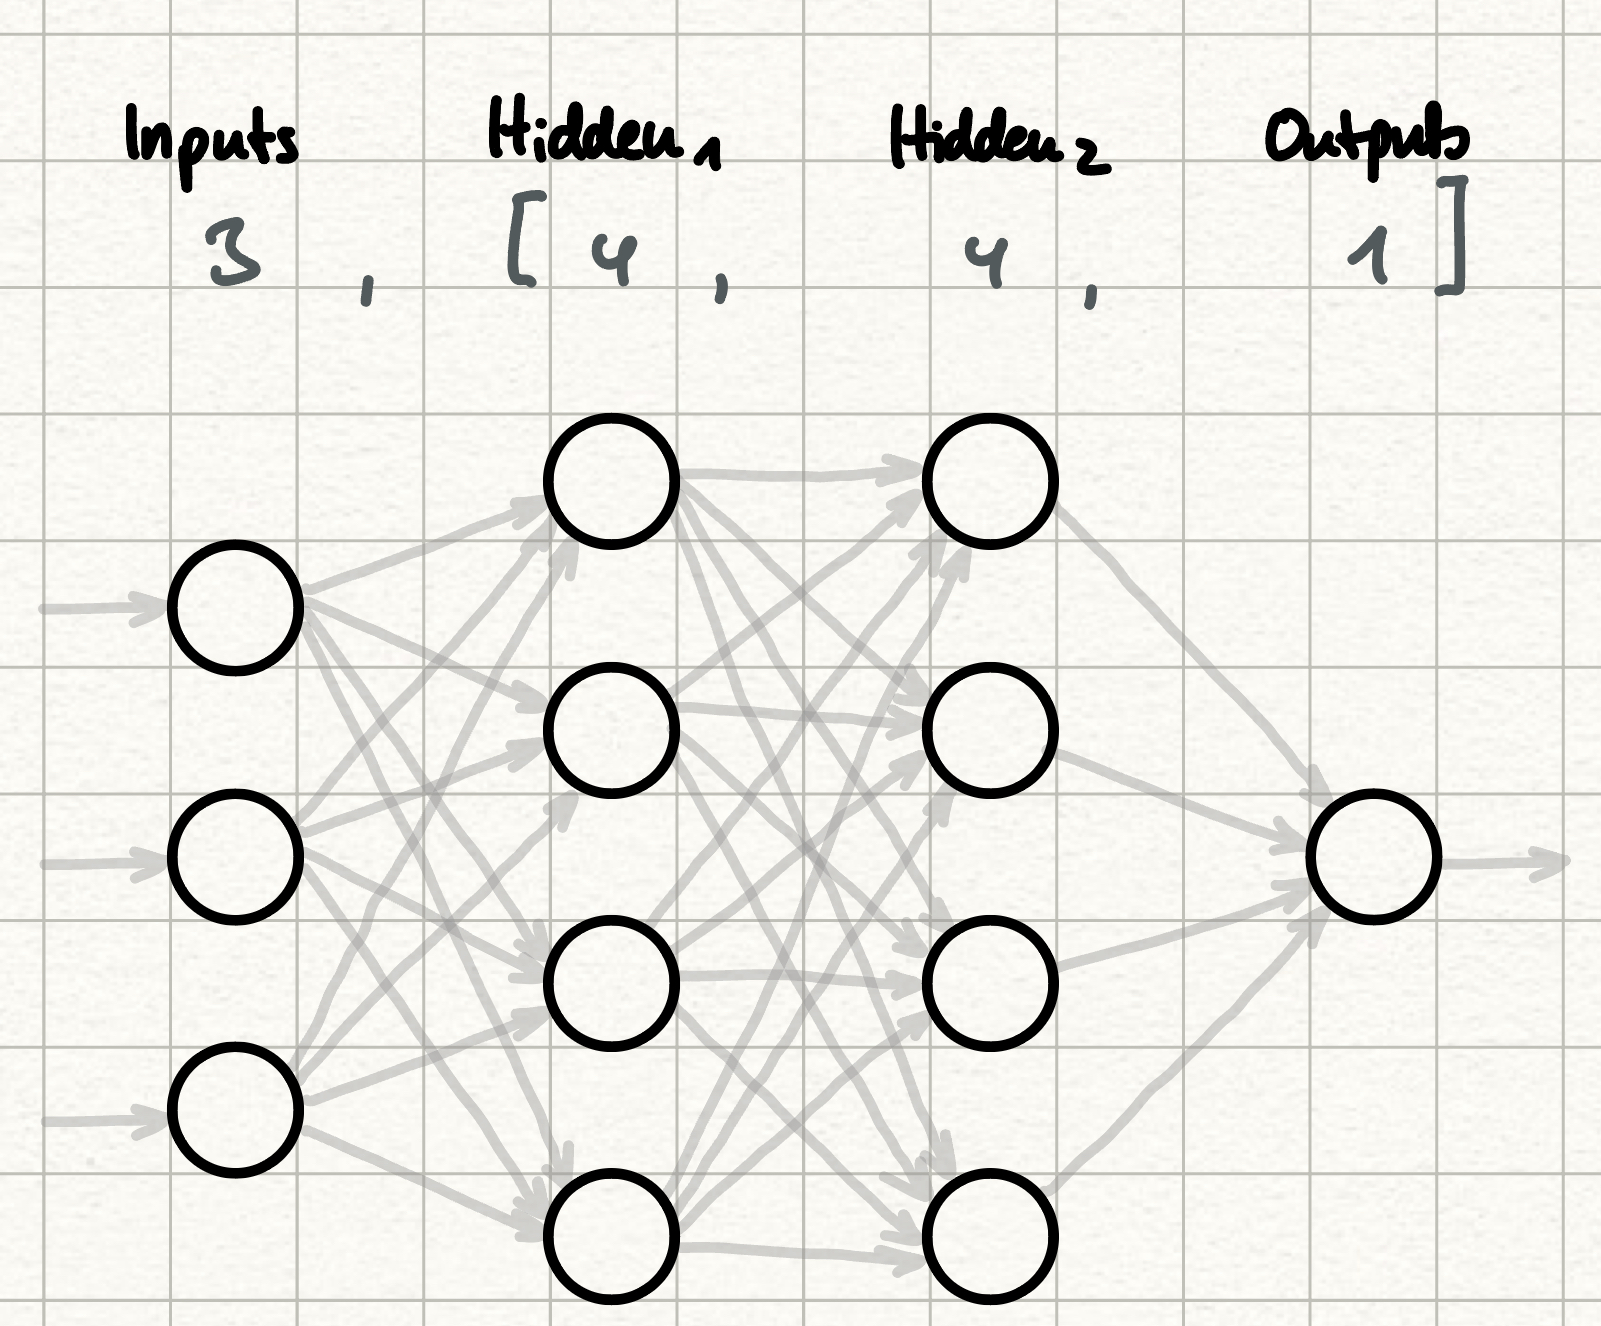 Inputs Hidden₁ Hidden₂ Outputs
3 , [ 4 , 4 , 1 ]